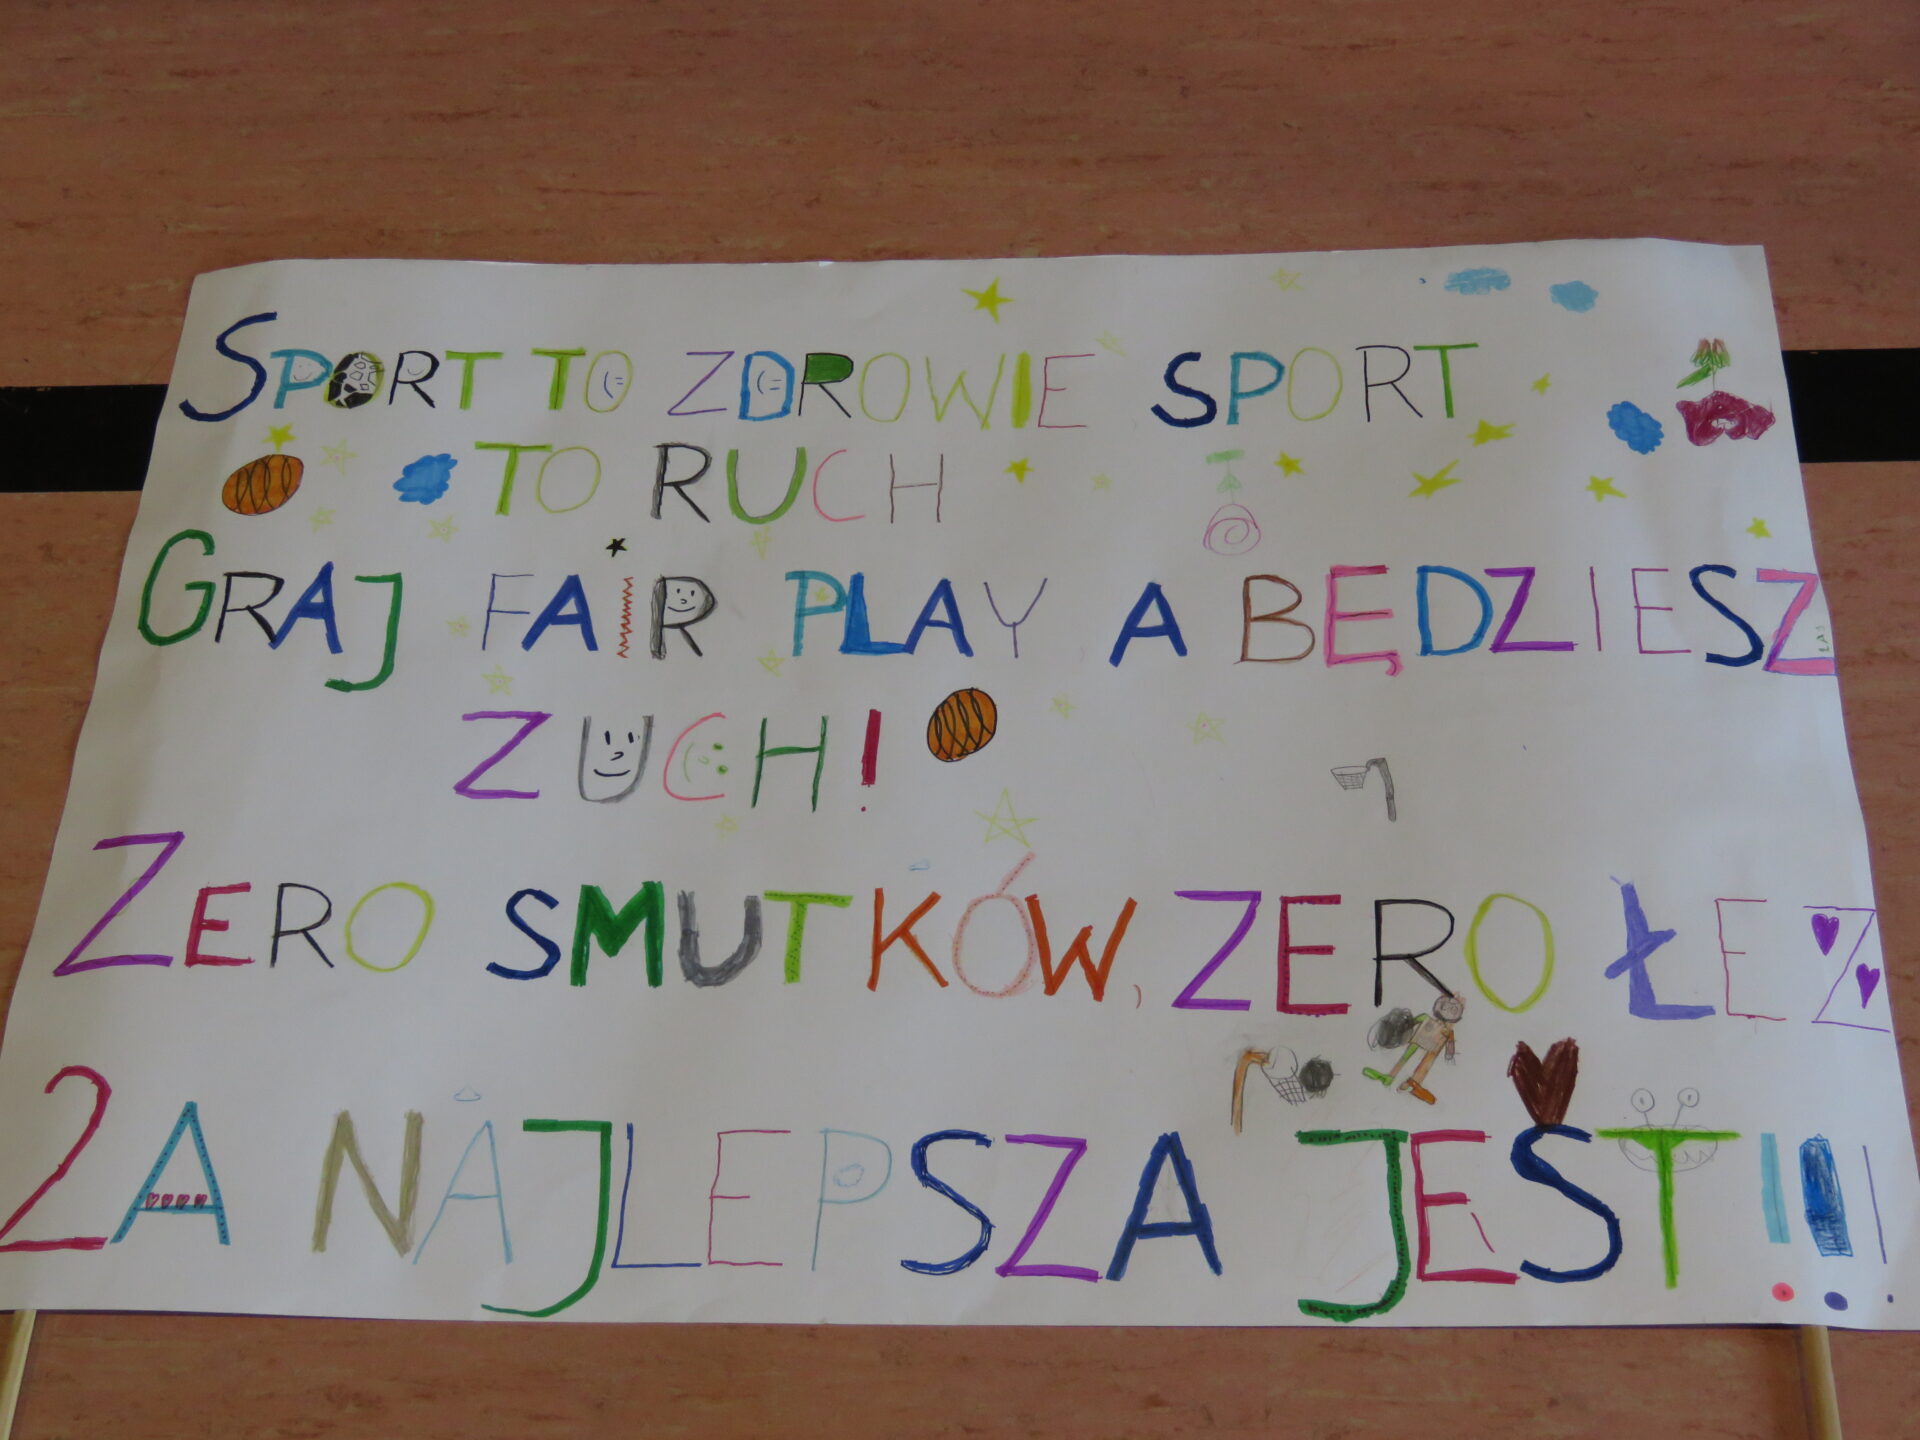 SPORT TO ZDROWIE SPORT
TO RUCH
GRAJ FAIR PLAY A BĘDZIESZ
ZUCH!
ZERO SMUTKÓW, ZERO ŁEZ
2A NAJLEPSZA JEST!!!